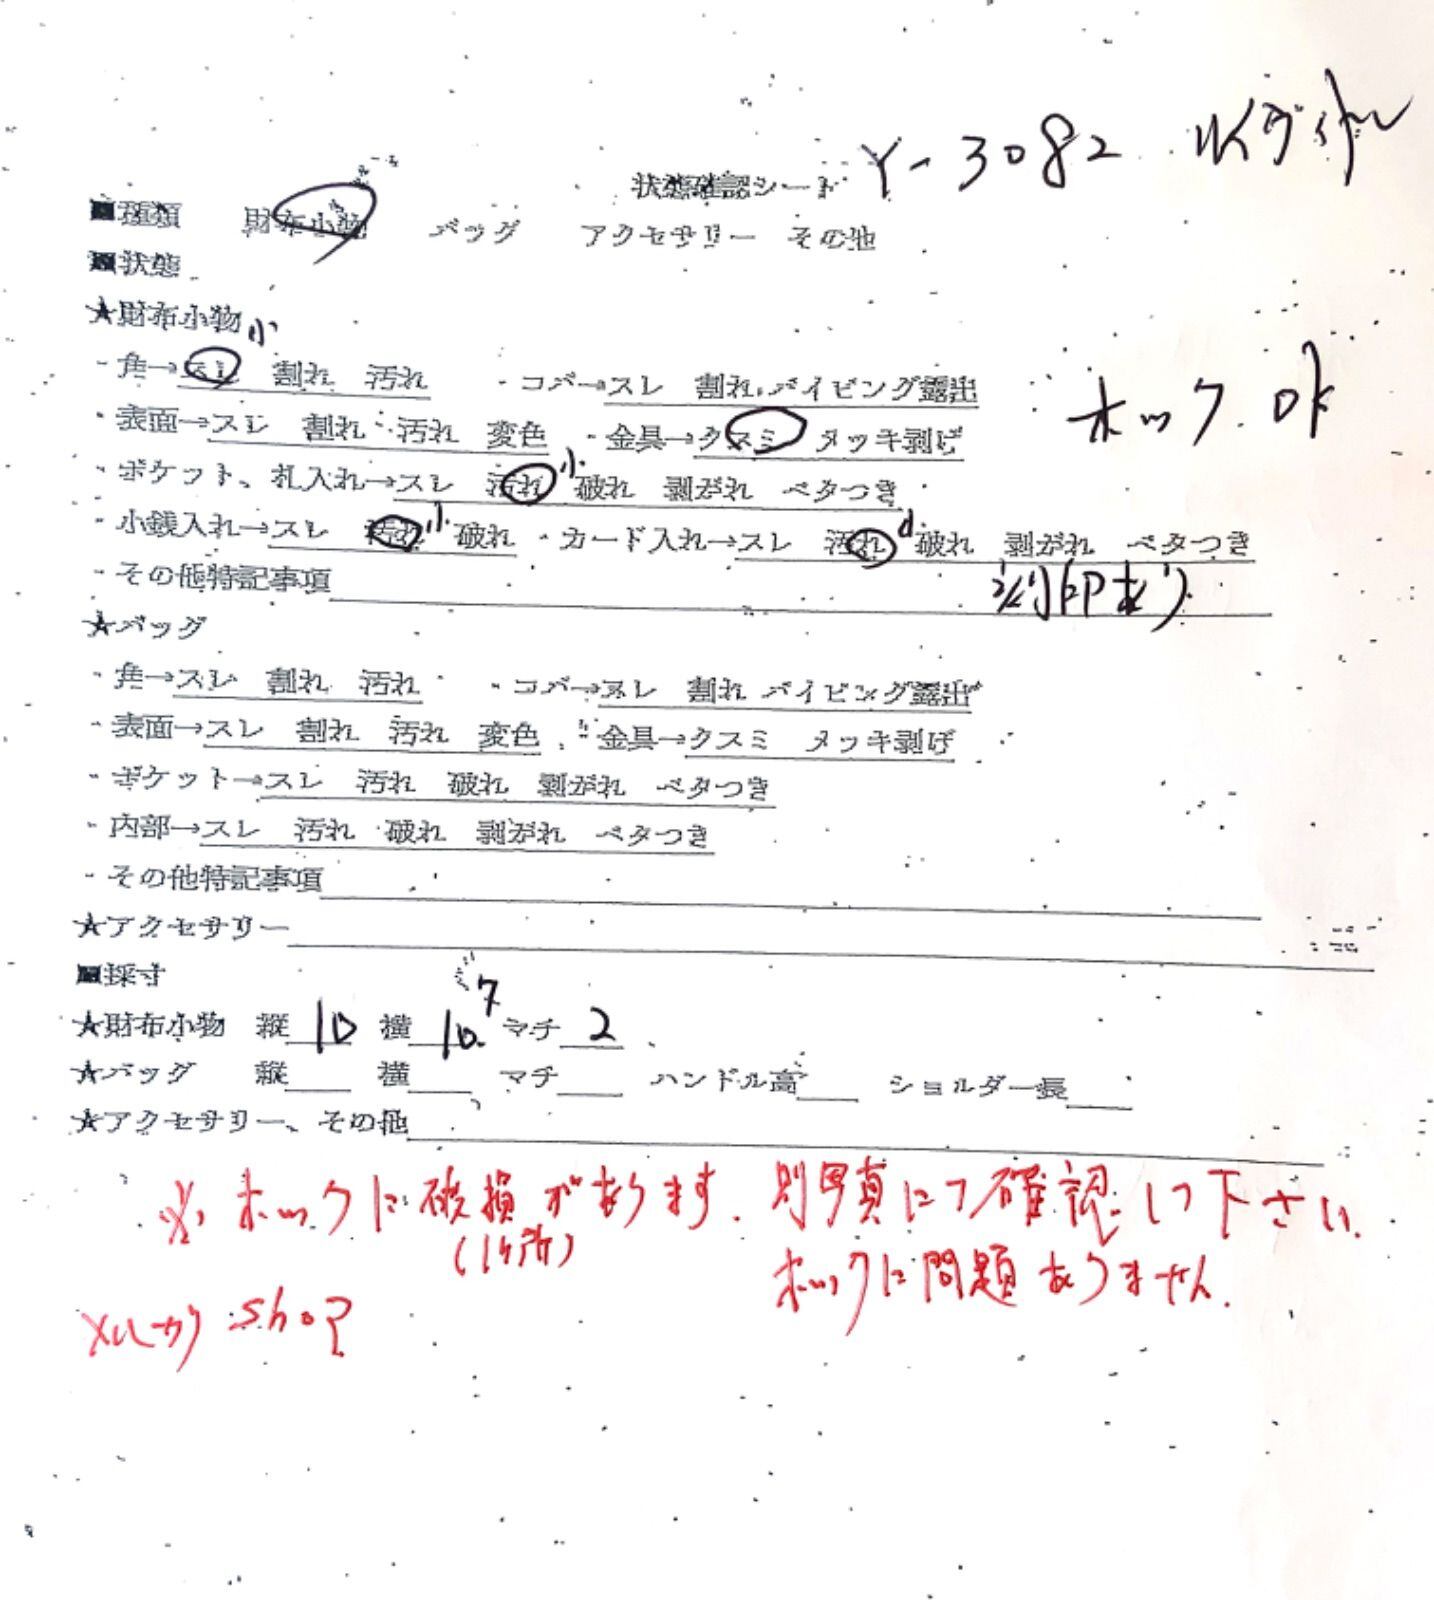 状態確認シート Y-3082 ルイヴィトン
■種類 財布小物 バッグ アクセサリー その他
■状態
★財布小物
小
・角→スレ 割れ 汚れ ・コバ→スレ 割れ パイピング露出
ホック OK
・表面→スレ 割れ 汚れ 変色 ・金具→クスミ メッキ剥げ
・ポケット、札入れ→スレ 汚れ 小 破れ 剥がれ ベタつき
・小銭入れ→スレ 汚れ 小 破れ ・カード入れ→スレ 汚れ 小 破れ 剥がれ ベタつき
・その他特記事項 刻印あり
★バッグ
・角→スレ 割れ 汚れ ・コバ→スレ 割れ パイピング露出
・表面→スレ 割れ 汚れ 変色 ・金具→クスミ メッキ剥げ
・ポケット→スレ 汚れ 破れ 剥がれ ベタつき
・内部→スレ 汚れ 破れ 剥がれ ベタつき
・その他特記事項
★アクセサリー
■採寸
★財布小物 縦 10 横 10.7 マチ 2
★バッグ 縦 横 マチ ハンドル高 ショルダー長
★アクセサリー、その他
※ ホックに破損があります. 別写真にて確認して下さい.
(1ヶ所)
ホックに問題ありません.
shop